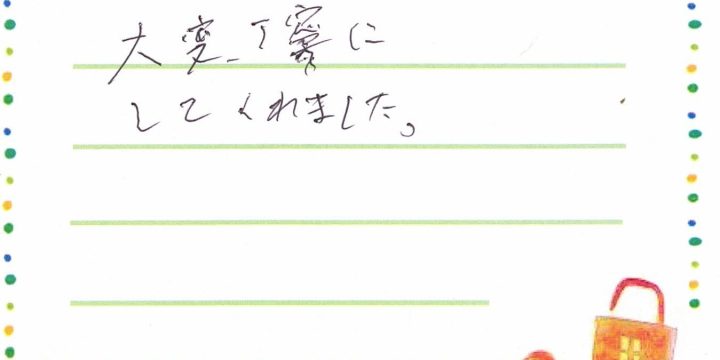 大変丁寧に
してくれました。